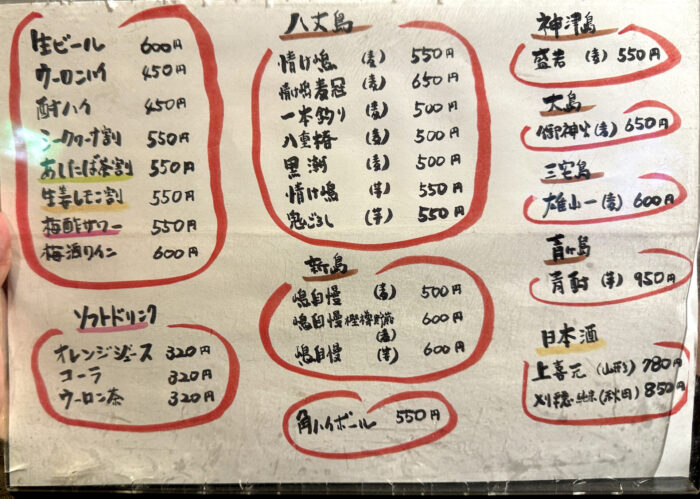 生ビール 600円
ウーロンハイ 450円
酎ハイ 450円
シークヮーサー割 550円
あしたば茶割 550円
生姜レモン割 550円
梅酢サワー 550円
梅酒ワイン 600円
ソフトドリンク
オレンジジュース 320円
コーラ 320円
ウーロン茶 320円
八丈島
情け嶋 (麦) 550円
情け嶋麦冠 650円
一本釣り (麦) 500円
八重椿 (麦) 500円
黒潮 (麦) 500円
情け嶋 (芋) 550円
鬼ごろし (芋) 550円
新島
嶋自慢 (麦) 500円
嶋自慢 樫樽貯蔵 (麦) 600円
嶋自慢 (芋) 600円
角ハイボール 550円
神津島
盛若 (麦) 550円
大島
御神火 (麦) 650円
三宅島
雄山一 (麦) 600円
青ヶ島
青酎 (芋) 950円
日本酒
上喜元 (山形) 780円
刈穂 (秋田) 850円